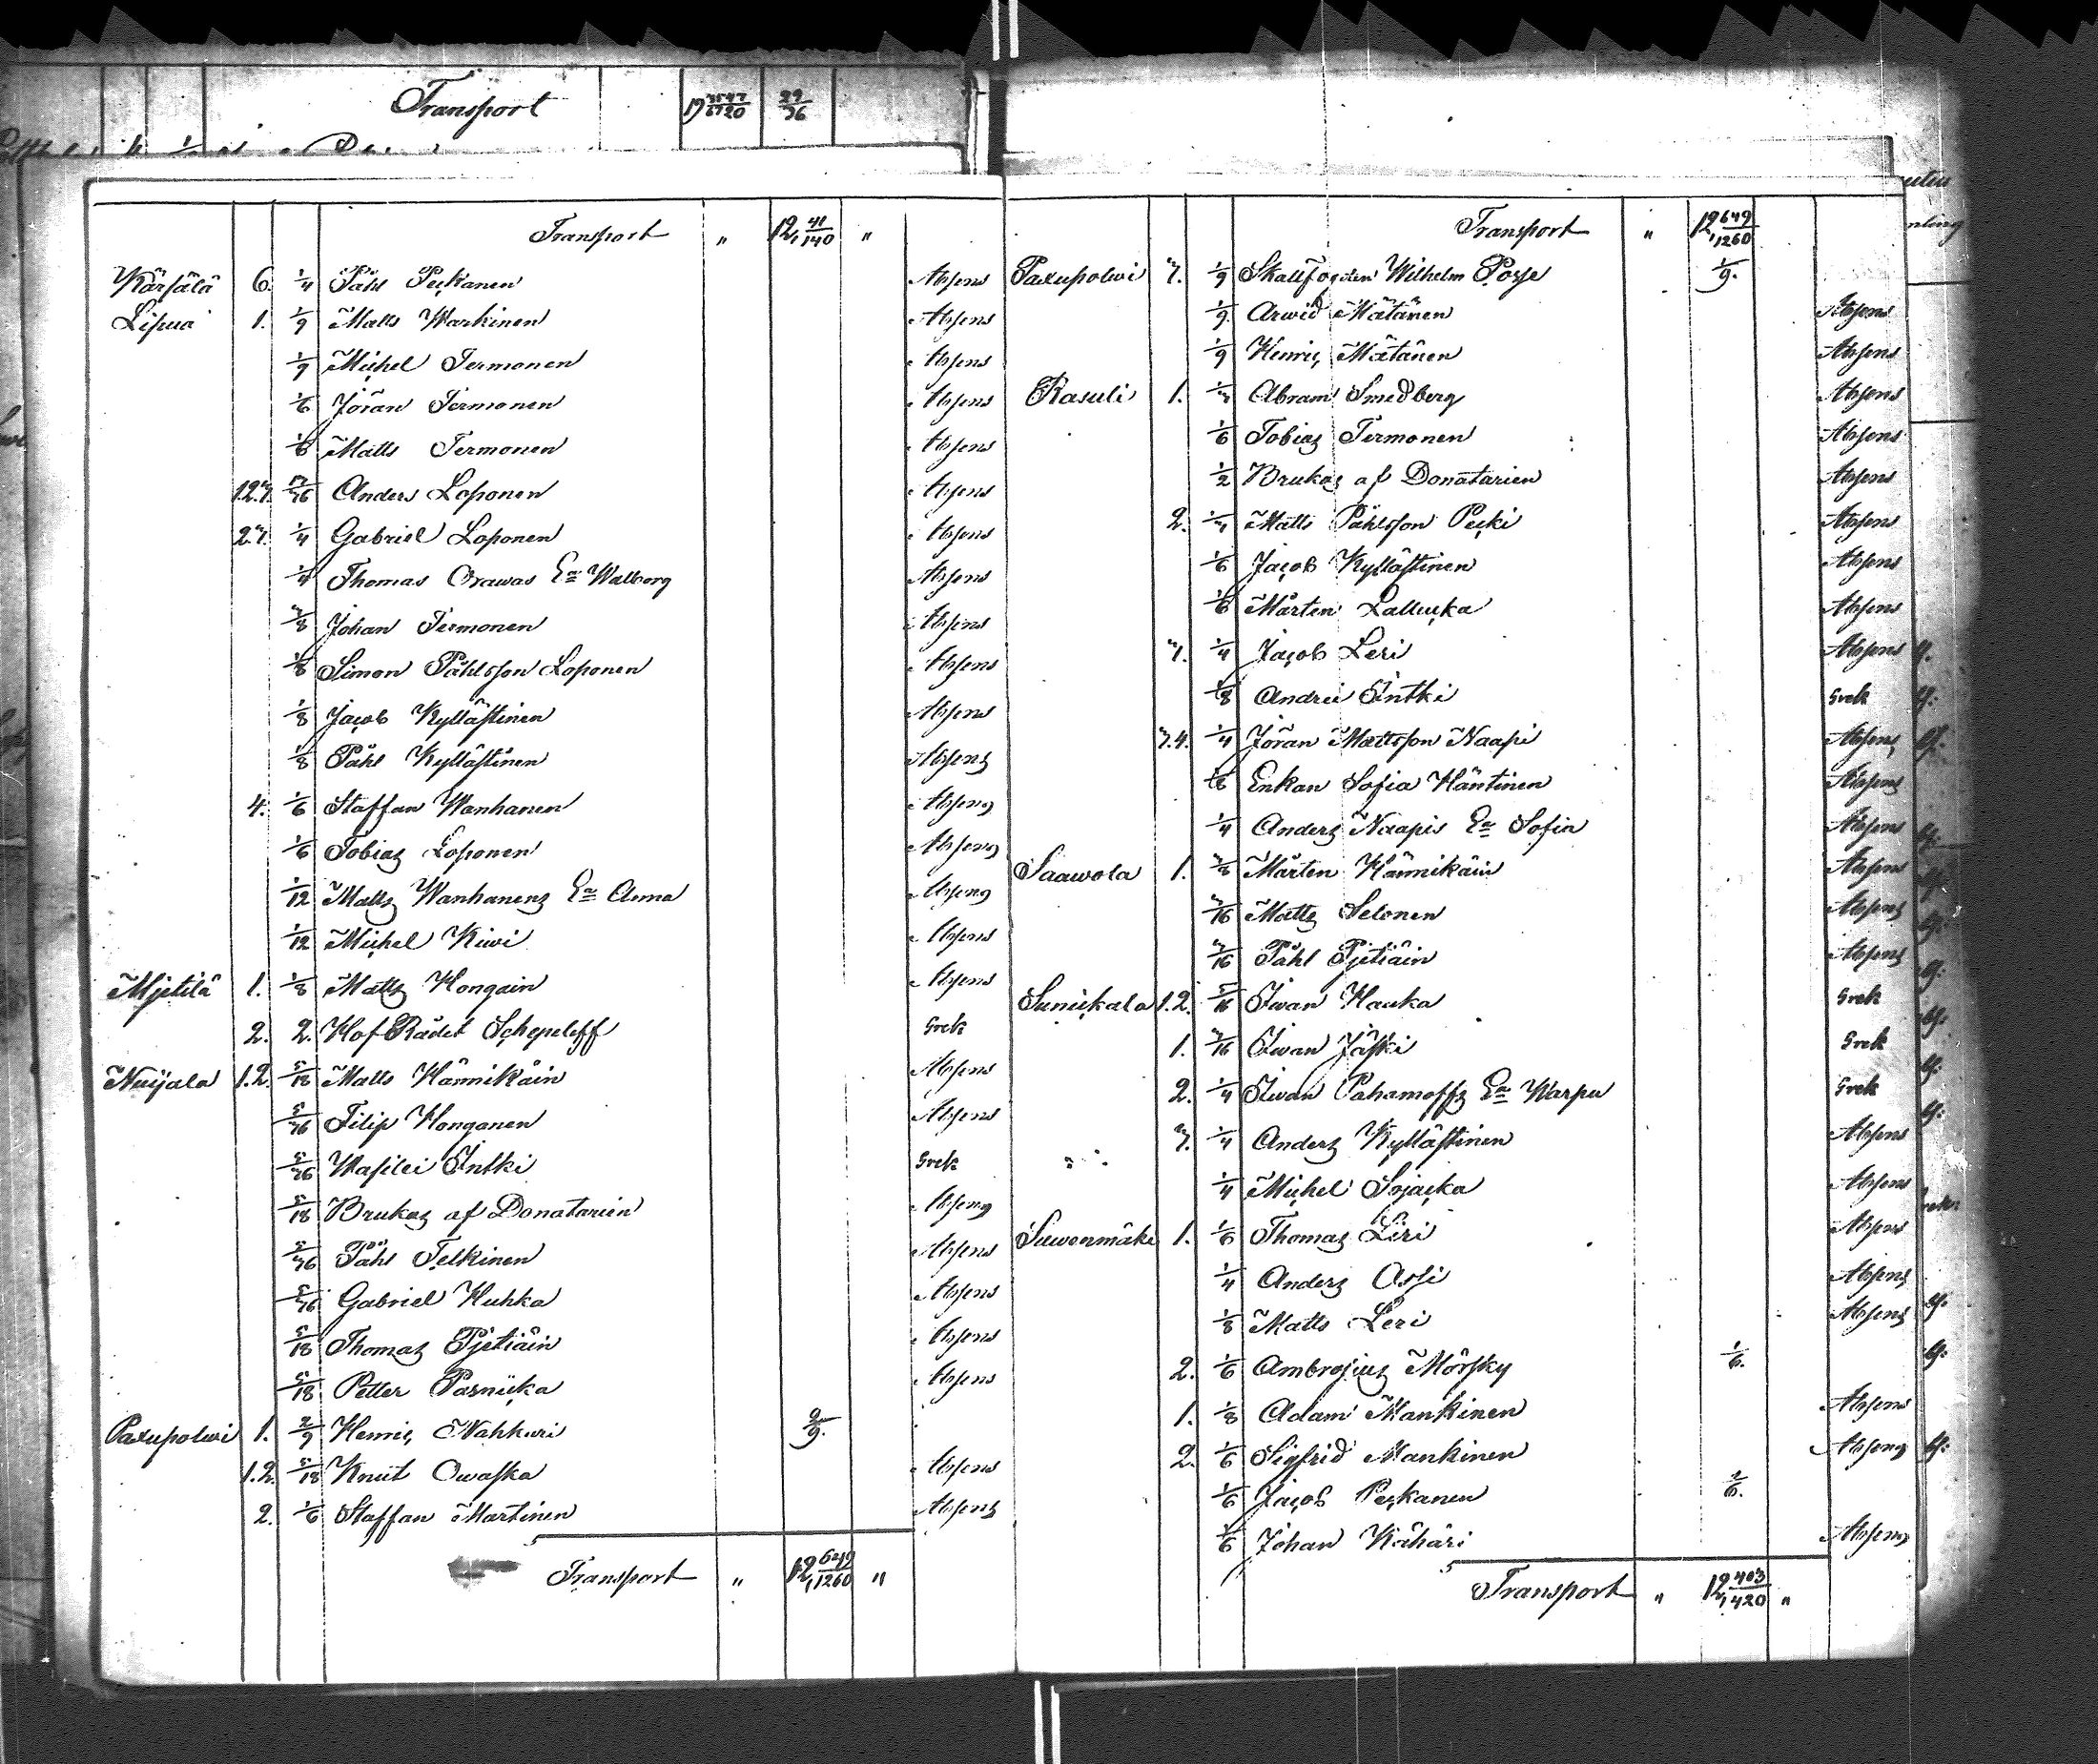 Transport 19 3547/6720 29/36
Transport " 12, 41/140 "
Kärsälä 6. 1/4 Påhl Peçkanen Absens
Lipua 1. 1/9 Matts Warkinen Absens
1/9 Miçhel Termonen Absens
1/6 Jöran Termonen Absens
1/6 Matts Termonen Absens
1.2.3. Anders Loponen Absens
2.3. 1/4 Gabriel Loponen Absens
1/4 Thomas Orawas Ea Walborg Absens
3/8 Johan Termonen Absens
1/8 Simon Påhlsson Loponen Absens
1/8 Jaçob Kyllästinen Absens
1/8 Påhl Kyllästinen Absens
4. 1/6 Staffan Wanhanen Absens
1/6 Tobias Loponen Absens
1/12 Matts Wanhanens Ea Anna Absens
1/12 Miçhel Kiwi Absens
Mjetilä 1. 1/8 Matts Hongain Absens
2. 2. Hof Rådet Sçhepeleff Grek
Nuijala 1.2. 5/18 Matts Hännikäin Absens
5/36 Filip Honganen Absens
5/36 Wasilei Intki Grek
5/18 Brukas af Donatarien Absens
5/36 Påhl Telkinen Absens
5/36 Gabriel Huhka Absens
5/18 Thomas Pjetiäin Absens
5/18 Petter Parniçka Absens
Paxupolwi 1. 2/9 Henriç Nahkuri 2/9.
1.2. 5/18 Knut Owaska Absens
2. 1/6 Staffan Martinen Absens
Transport " 12, 649/1260 "
Transport " 12, 649/1260
Paxupolwi 3. 1/9 Skallfogden Wilhelm Posse 1/9.
1/9 Arwid Mätänen Absens
1/9 Henriç Mätänen Absens
Rasuli 1. 1/3 Abram Smedberg Absens
1/6 Tobias Termonen Absens
1/2 Brukas af Donatarien Absens
2. 1/3 Matts Påhlsson Peçki Absens
1/6 Jaçob Kyllästinen Absens
1/6 Mårten Lalluçka Absens
3. 1/4 Jaçob Leri Absens
1/8 Andrei Intki Grek
3.4. 1/4 Jöran Mattsson Naapi Absens
1/8 Enkan Sofia Häntinen Absens
1/4 Anders Naapis Ea Sofia Absens
Saawola 1. 3/8 Mårten Hännikäin Absens
3/16 Matts Selonen Absens
3/16 Påhl Pjetiäin Absens
Suniçkala 1.2. 5/16 Iwan Hauka Grek
1. 3/16 Iwan Jäski Grek
2. 1/4 Iwan Pahamoffs Ea Warpu Grek
3. 1/4 Anders Kyllästinen Absens
1/4 Miçhel Sojaçka Absens
Suwenmäki 1. 1/6 Thomas Leri Absens
1/4 Anders Assi Absens
1/8 Matts Leri Absens
2. 1/6 Ambrosius Mörsky 1/6.
1. 1/8 Adam Mankinen Absens
2. 1/6 Sigfrid Mankinen Absens
1/6 Jaçob Peçkanen 1/6.
1/6 Johan Kähäri Absens
Transport " 12, 403/420 "